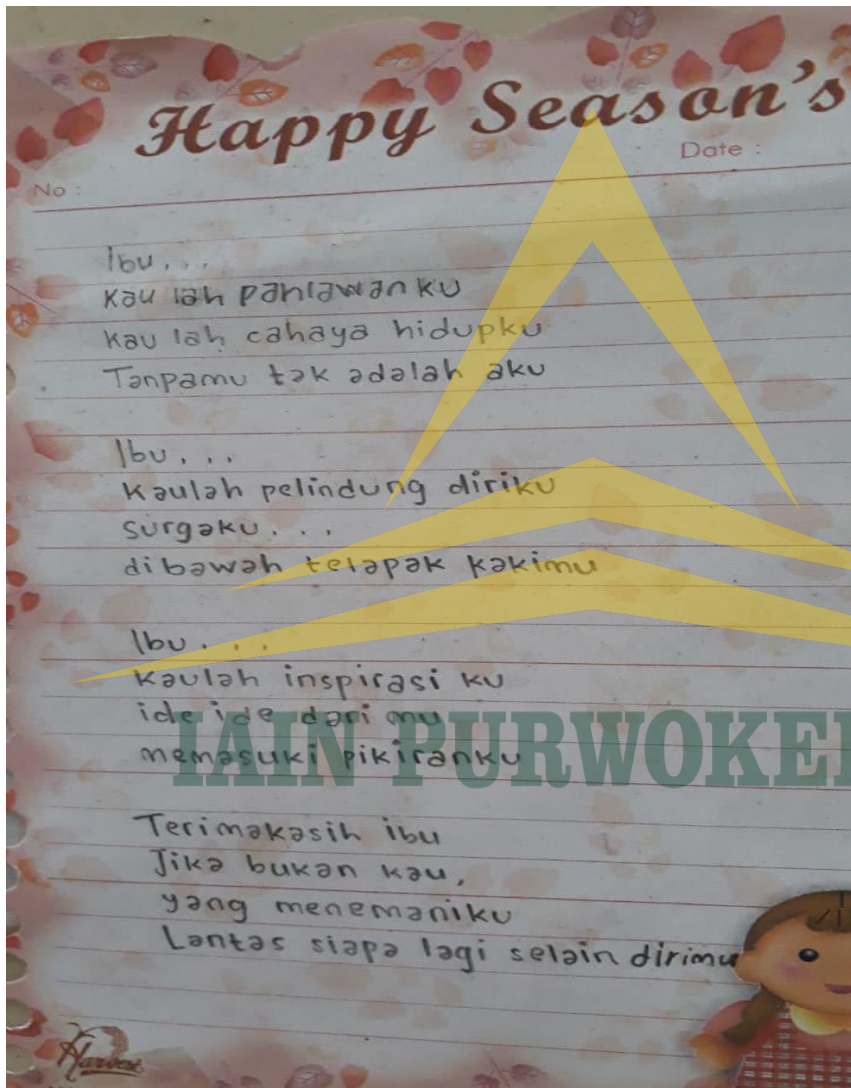 Happy Season's
Date :
No :
Ibu, . .
Kau lah pahlawan ku
Kau lah cahaya hidupku
Tanpamu tak adalah aku
Ibu, . .
Kaulah pelindung diriku
surgaku. . .
dibawah telapak kakimu
Ibu. . .
Kaulah inspirasi ku
ide ide dari mu
memasuki pikiranku
IAIN PURWOKE
Terimakasih ibu
Jika bukan kau,
yang menemaniku
Lantas siapa lagi selain dirimu
Harvest